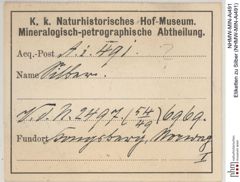 K. k. Naturhistorisches Hof-Museum.
Mineralogisch-petrographische Abtheilung.
Acq.-Post A.i.491.
Name Silber.
V. d. N. 2497. (54/49) 6969.
Fundort Kongsberg, Norweg
I
NHMW-MIN-AI491
Etiketten zu Silber (NHMW-MIN-AI491)